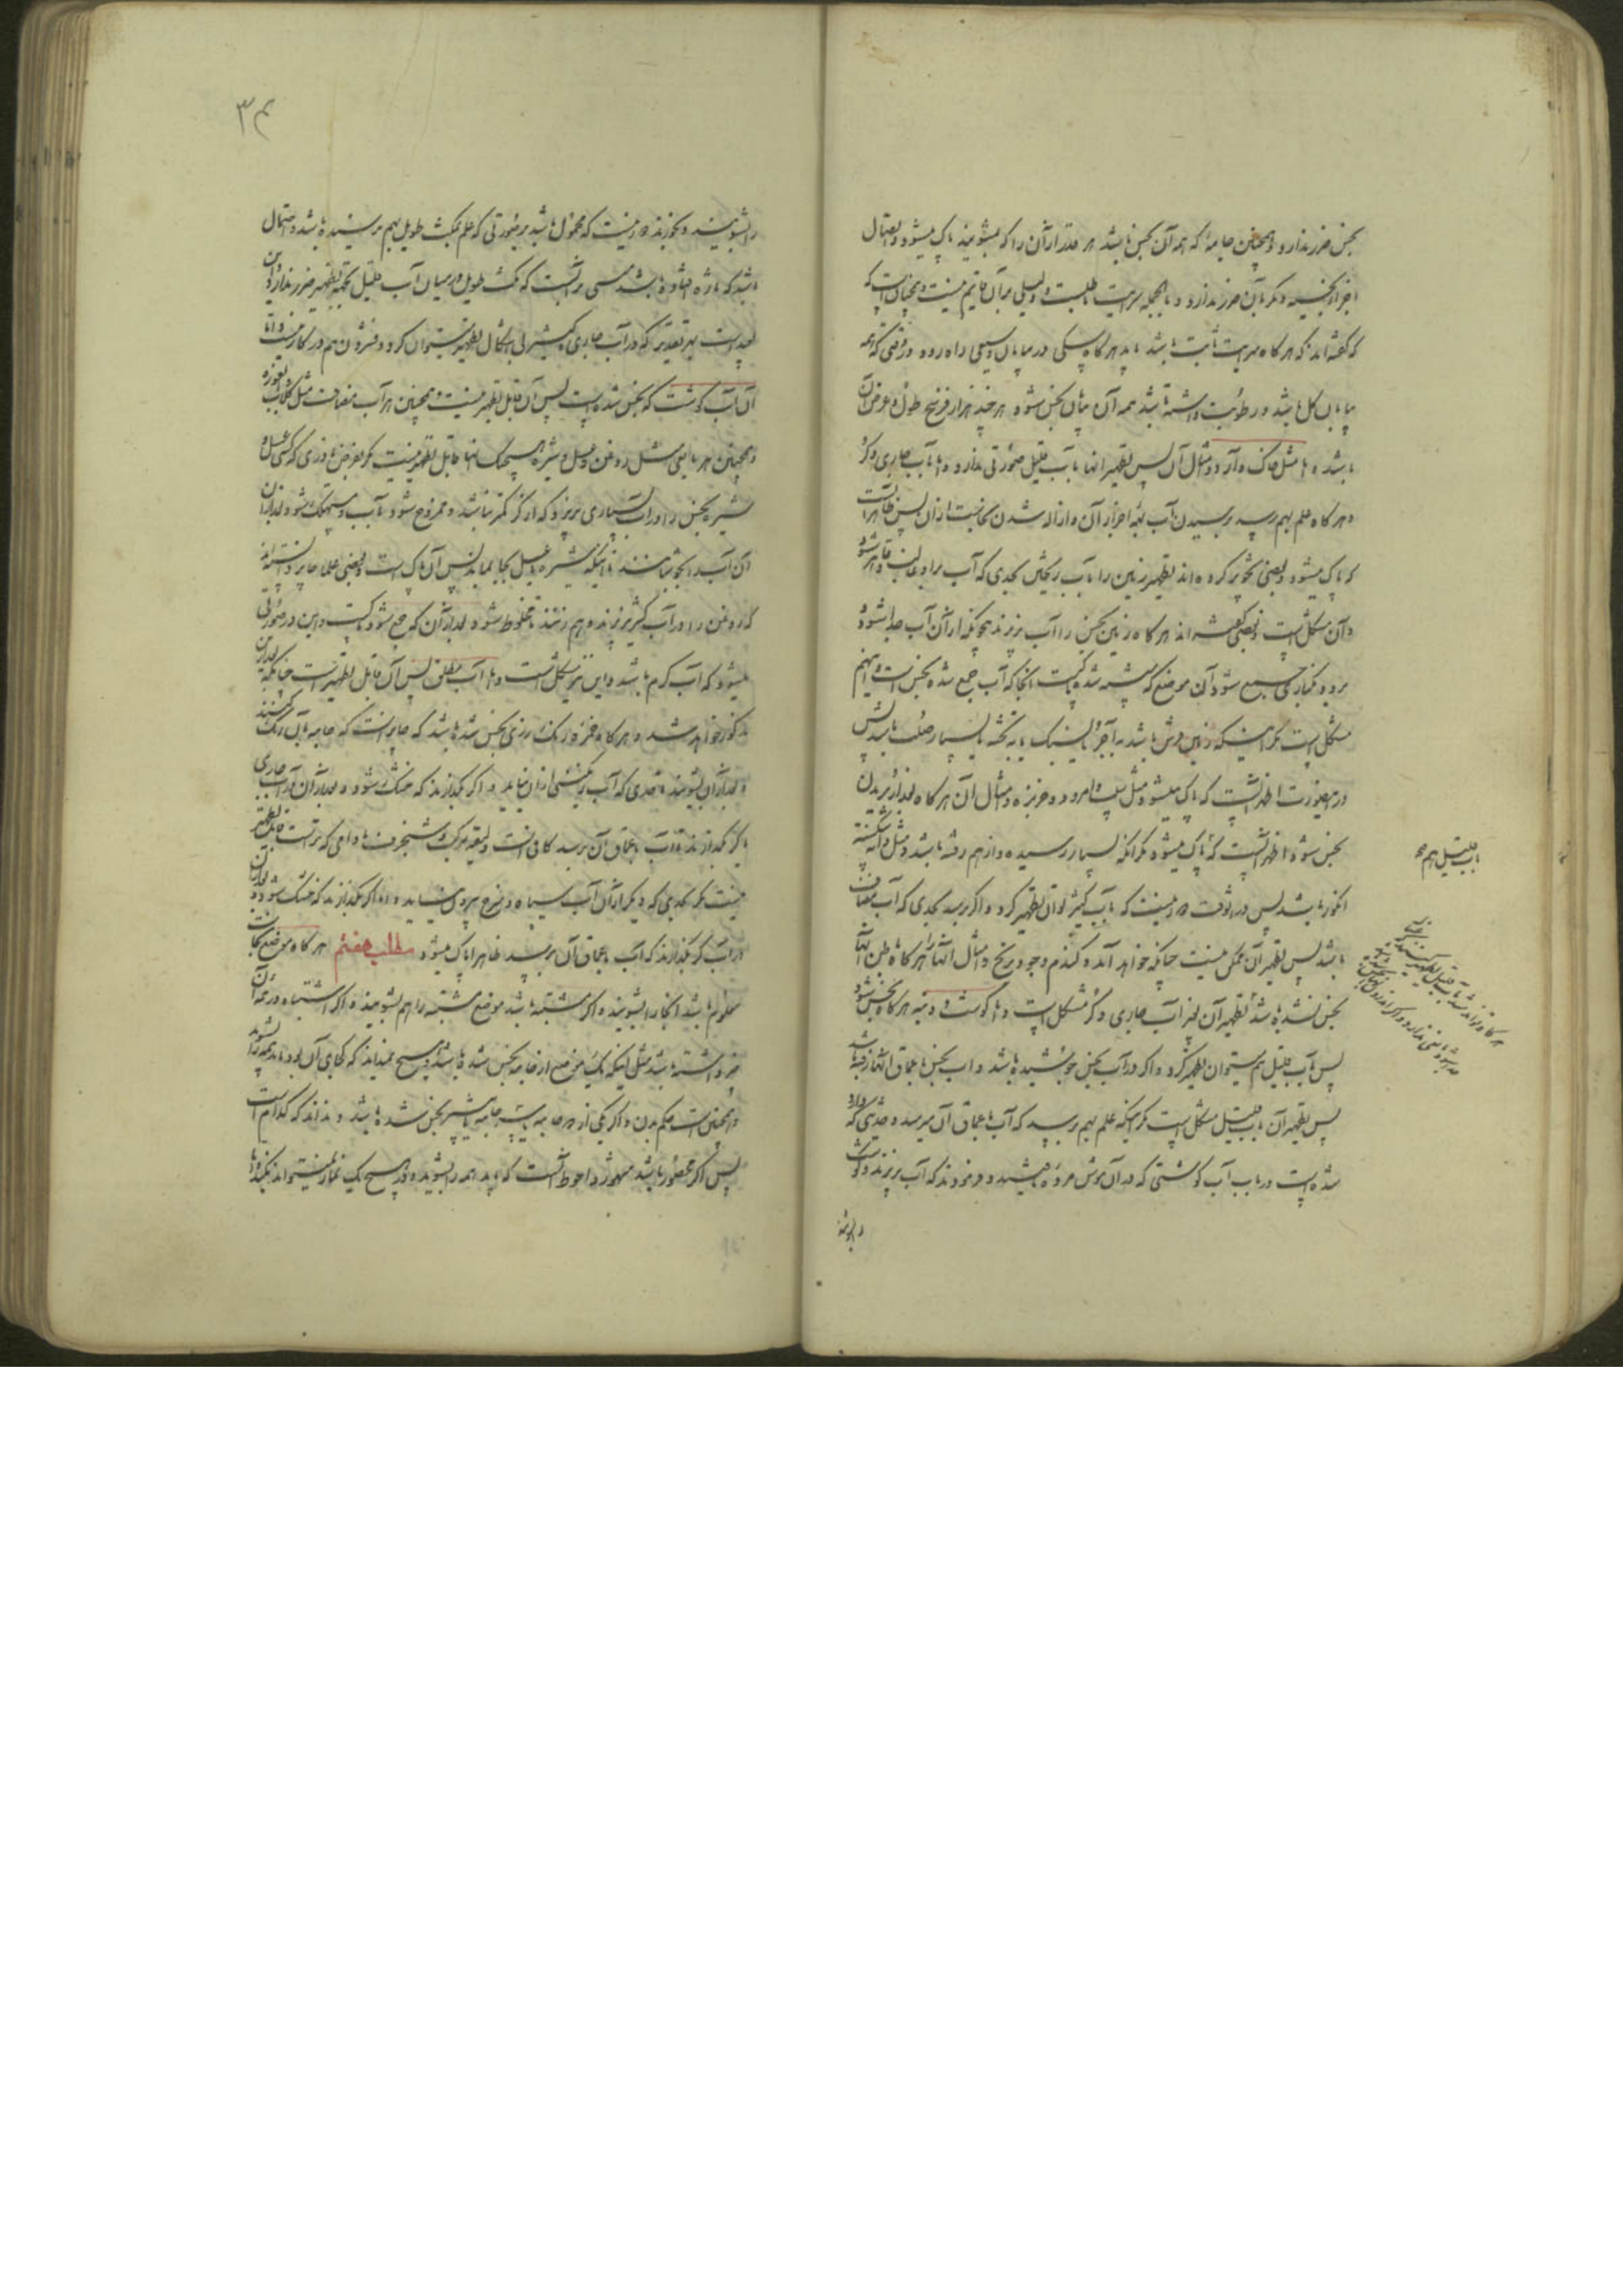 نجس ضرر ندارد و همچنین جامهٔ که همه آن نجس باشد هر قدر از آن را که بشویند پاک میشود و اتصال
اجزاء نجسه دیگر بآن ضرر ندارد و بالجمله سرایت باطلست و دلیلی بر آن قایم نیست و همچنان است که
که گفته‌اند که هرگاه سرایت ثابت باشد باید هرگاه سکی در بیابان وسیعی راه رود در وقتی که همه
بیابان کل باشد و رطوبت داشته باشد همه آن بیابان نجس شود هر چند هزار فرسخ طول و عرض آن
باشد و اما مثل خاک و آرد و امثال آن پس تطهیر انها بآب قلیل صورتی ندارد و اما بآب جاری و کر
و هرگاه علم بهم رسد برسیدن آب بهمه اجزاء آن و ازاله شدن نجاست از ان پس ظاهر آنست
که پاک میشود و بعضی تجویز کرده‌اند تطهیر زمین را بآب ریختن بحدی که آب بر او غالب و قاهر شود
و آن مشکل است و بعضی گفته‌اند هرگاه زمین نجس را آب بریزند بحیثیتکه از آن آب جدا شود و
برود و بکناری جمع شود آن موضع که شسته شده پاکست و آنجا که آب جمع شده نجس است و اینهم
مشکل است مگر اینکه زمین فرش باشد به آجر یا سنگ یا به تخته یا بسیار صلب باشد پس
در این صورت اظهر آنست که پاک میشود و مثل سیب و امرود و خربزه و امثال آن هرگاه بعد از بریدن
نجس شود اظهر آنست که پاک میشود مگر آنکه بسیار رسیده و از هم رفته باشد و مثل دانه شکسته
انگور باشد پس در انوقت دور نیست که بآب کثیر توان تطهیر کرد و اگر برسد بحدی که آب مضاف
باشد پس تطهیر آن ممکن نیست چنانکه خواهد آمد و گندم و جو و برنج و امثال انها را هرگاه باطن انها
نجس نشده باشد تطهیر آن بغیر آب جاری و کر مشکل است و اما گوشت و دنبه هرگاه نجس شود
پس بآب قلیل هم میتوان تطهیر کرد و اگر در آب نجس جوشیده باشد و آب نجس باعماق انها رفته باشد
پس تطهیر آن بآب قلیل مشکل است مگر اینکه علم بهم برسد که آب باعماق آن میرسد و حدیثی که وارد
شده است در باب آب گوشتی که در آن موش مرده باشد و فرمودند که آب بریزند و گوشت
را بشویند
بآب قلیل هم
را بشویند و بخورند دور نیست که محمول باشد بر صورتی که علم بمکث طویل بهم نرسیده باشد و احتمال
باشد که تازه افتاده باشد مبنی بر آنست که مکث طویل در میان آب قلیل بجهة تطهیر ضرر ندارد و این
بعید است بهر تقدیر که در آب جاری و کثیر بی‌اشکال تطهیر میتوان کرد و فشردن هم در کار نیست و اما
آن آب گوشت که نجس شده است پس آن قابل تطهیر نیست و همچنین هر آب مضاف مثل گلاب و غیره
و همچنین هر مایعی مثل روغن و عسل و شیره هیچیک انها قابل تطهیر نیست مگر بفرض نادری که کسی عسل و
شیره نجس را در آب بسیاری بریزد که از کر کمتر نباشد و ممزوج شود بآب و مستهلک شود و بعد از ان
آن آب را بجوشانند تا اینکه شیره یا عسل بجا بماند پس آن پاک است و بعضی علما جایز دانسته‌اند
که روغن را در آب کثیر بریزند و بهم زنند تا مخلوط شود بعد از آن که جمع شود پاکست و این در صورتی
میشود که آب گرم باشد و این نیز مشکل است و اما آب مطلق پس آن قابل تطهیر است چنانکه بعد از این
مذکور خواهد شد و هرگاه خم رنگ رزی نجس شده باشد که جایز است که جامه بآن رنگ کنند
و بعد از آن بشویند تا حدی که آب رنگینی از ان نیاید و اگر بگذارند که خشک شود و بعد از آن در آب جاری
یا کر بگذارند تا آب باعماق آن برسد کافی است و لیقه مرکب و شنجرف مادامی که تر است قابل تطهیر
نیست مگر بحدی که دیگر از آن آب سیاه و سرخ بیرون نیاید و اما اگر بگذارند که خشک شود و بعد از ان
در آب کر بگذارند که آب باعماق آن برسد ظاهرا پاک میشود مطلب هفتم هرگاه موضع نجاست
معلوم باشد انجا را بشویند و اگر مشتبه باشد موضع مشتبه را هم بشویند و اگر اشتباه در همه آن
جزو داشته باشد مثل اینکه یک موضع از جامه نجس شده باشد و هیچ نمیداند که کجای آن بود باید همه را بشوید
و همچنین است حکم بدن و اگر یکی از دو جامه یا بیشتر جامه بآن نجس شده باشد و نداند که کدام است
پس اگر محصور باشد مشهور و احوط آنست که باید همه را بشوید و در هیچ یک نماز نمیتواند بکند و اما
۳۴